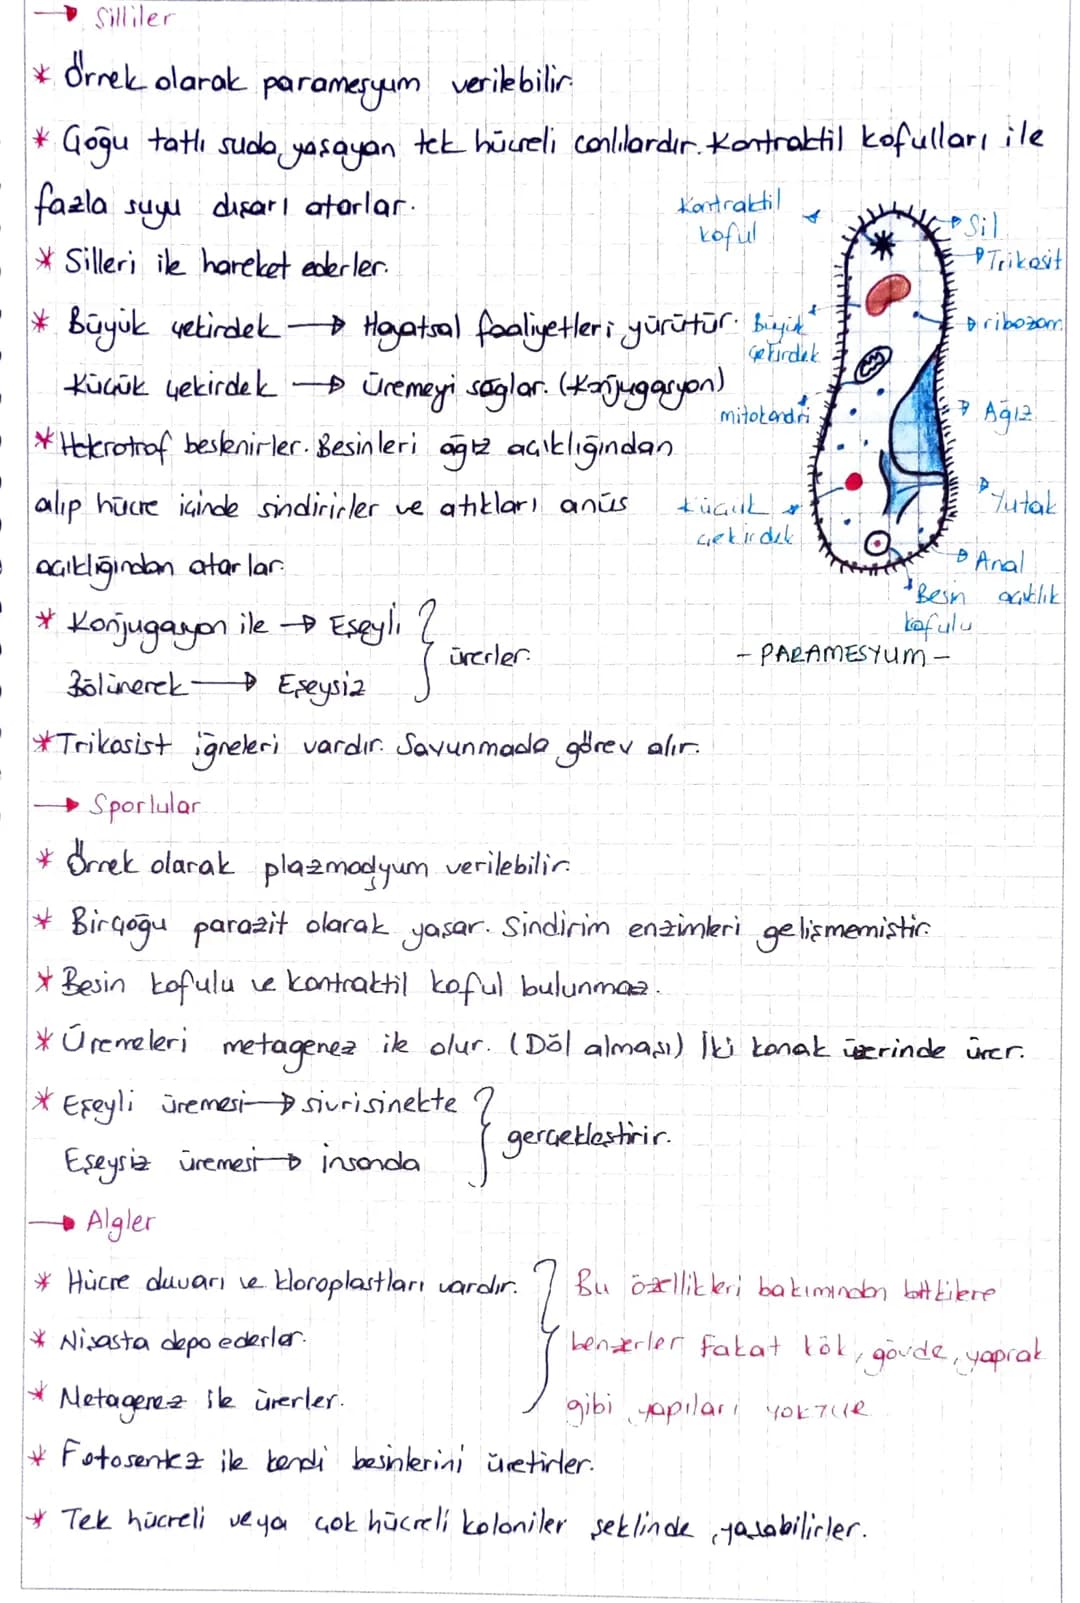 → Silliler
* Örnek olarak paramesyum verilebilir.
* Çoğu tatlı suda yaşayan tek hücreli canlılardır. Kontraktil kofulları ile
fazla suyu dışarı atarlar.
* Silleri ile hareket ederler.
* Büyük çekirdek → Hayatsal faaliyetleri yürütür.
Küçük çekirdek → Üremeyi sağlar. (Konjugasyon)
* Hetetrotrof beslenirler. Besinleri ağız açıklığından
alıp hücre içinde sindirirler ve atıkları anüs
açıklığından atarlar.
* Konjugasyon ile → Eşeyli
Bölünerek → Eşeysiz
ürerler.
* Trikosist iğneleri vardır. Savunmada görev alır.
Kontraktil
koful
Sil
Trikosit
Büyük
çekirdek
ribozom
mitokondri
Ağız
küçük
çekirdek
Yutak
Anal
açıklık
Besin
kofulu
- PARAMESYUM -
→ Sporlular
* Örnek olarak plazmodyum verilebilir.
* Birçoğu parazit olarak yaşar. Sindirim enzimleri gelişmemiştir.
* Besin kofulu ve kontraktil koful bulunmaz.
* Üremeleri metagenez ile olur. (Döl alması) İki konak üzerinde ürer.
* Eşeyli üremesi → sivrisinekte
Eşeysiz üremesi → insanda
gerçekleştirir.
→ Algler
* Hücre duvarı ve kloroplastları vardır.
* Nişasta depo ederler.
* Metagenez ile ürerler.
Bu özellikleri bakımından bitkilere
benzerler fakat kök, gövde, yaprak
gibi yapıları yoktur
* Fotosentez ile kendi besinlerini üretirler.
* Tek hücreli veya çok hücreli koloniler şeklinde yaşabilirler.